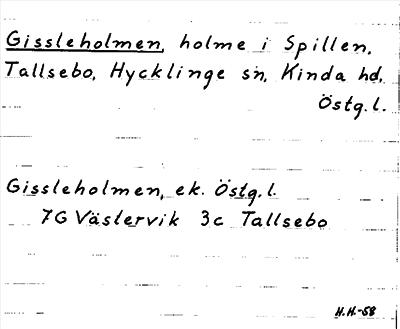 Gissleholmen, holme i Spillen,
Tallsebo, Hycklinge sn, Kinda hd,
Östg.l.
Gissleholmen, ek. Östg.l.
7G Västervik 3c Tallsebo
H.H.-58